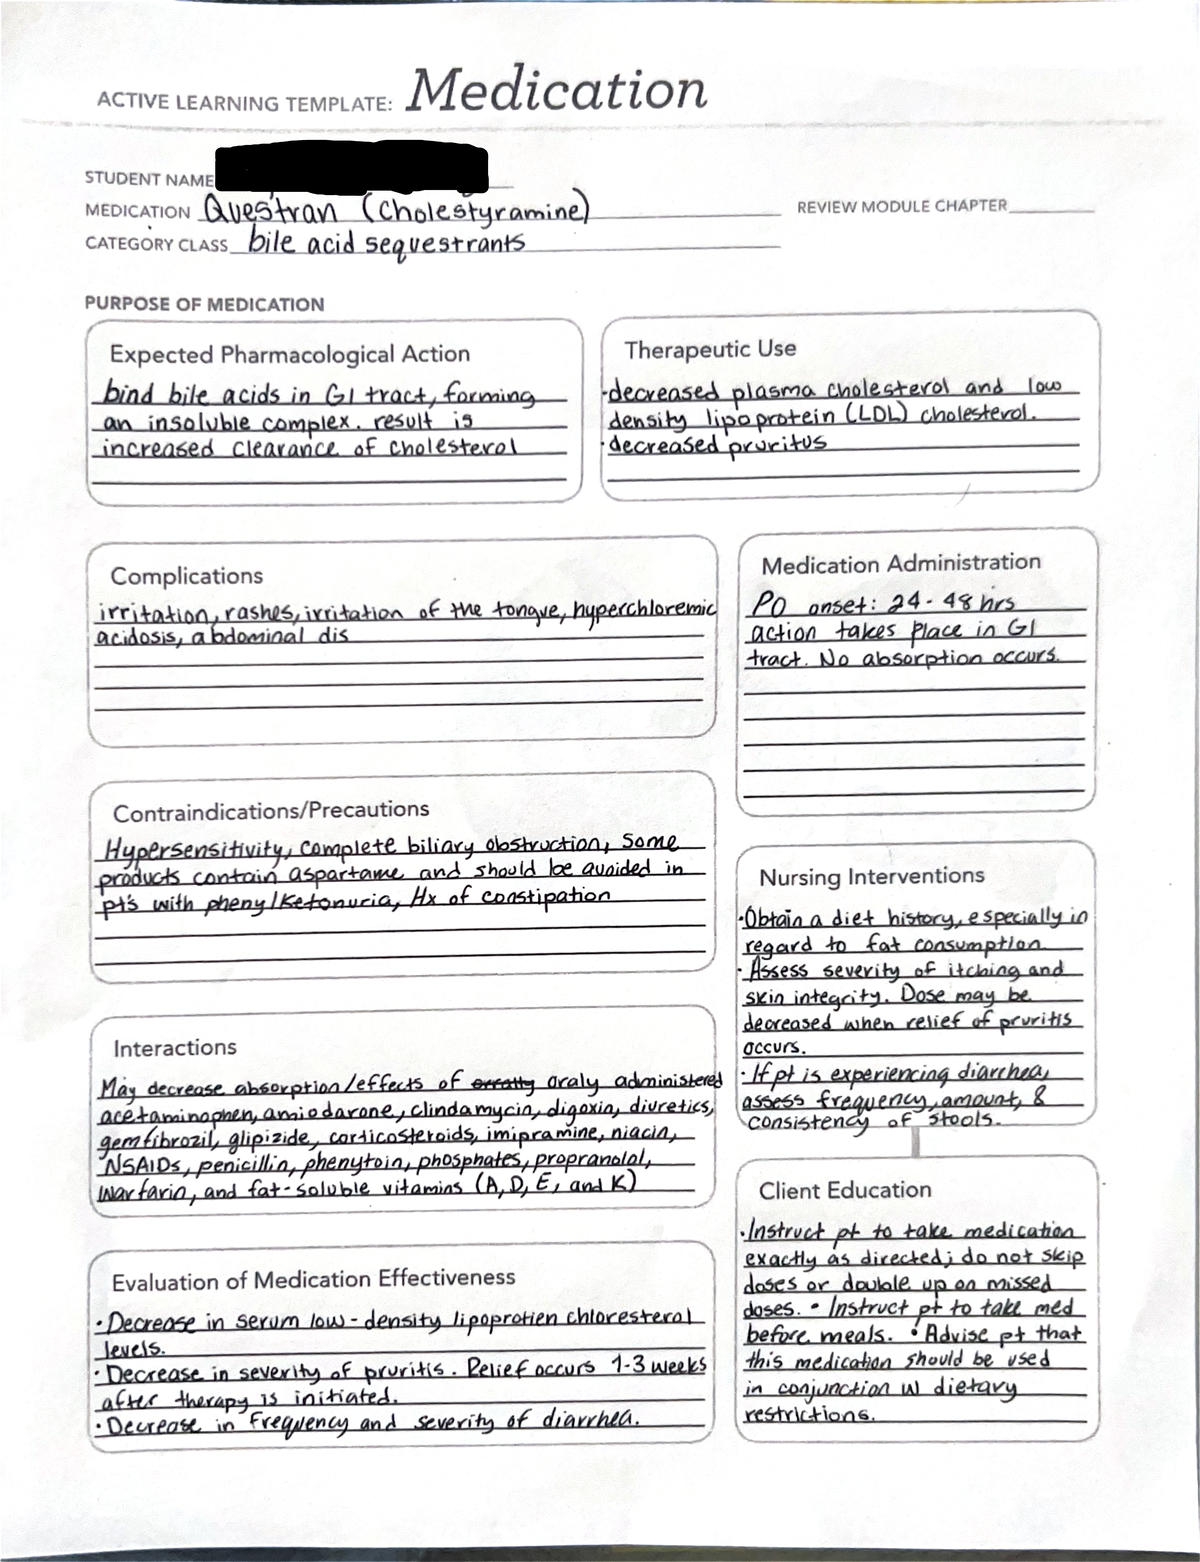 ACTIVE LEARNING TEMPLATE: Medication
STUDENT NAME
MEDICATION Questran (Cholestyramine)
REVIEW MODULE CHAPTER
CATEGORY CLASS bile acid sequestrants
PURPOSE OF MEDICATION
Expected Pharmacological Action
bind bile acids in GI tract, forming
an insoluble complex. result is
increased clearance of cholesterol
Therapeutic Use
·decreased plasma cholesterol and low
density lipoprotein (LDL) cholesterol.
·decreased pruritus
Complications
irritation, rashes, irritation of the tongue, hyperchloremic
acidosis, abdominal dis
Medication Administration
PO onset: 24-48 hrs
action takes place in GI
tract. No absorption occurs.
Contraindications/Precautions
Hypersensitivity, complete biliary obstruction, Some
products contain aspartame and should be avoided in
pt's with phenylketonuria, Hx of constipation
Nursing Interventions
·Obtain a diet history, especially in
regard to fat consumption
·Assess severity of itching and
skin integrity. Dose may be
decreased when relief of pruritis
occurs.
·If pt is experiencing diarrhea,
assess frequency, amount, &
consistency of stools.
Interactions
May decrease absorption/effects of oraly administered
acetaminophen, amiodarone, clindamycin, digoxin, diuretics,
gemfibrozil, glipizide, corticosteroids, imipramine, niacin,
NSAIDs, penicillin, phenytoin, phosphates, propranolol,
warfarin, and fat-soluble vitamins (A, D, E, and K)
Client Education
·Instruct pt to take medication
exactly as directed; do not skip
doses or double up on missed
doses. • Instruct pt to take med
before meals. • Advise pt that
this medication should be used
in conjunction w dietary
restrictions.
Evaluation of Medication Effectiveness
·Decrease in serum low-density lipoprotien chloresterol
levels.
·Decrease in severity of pruritis. Relief occurs 1-3 weeks
after therapy is initiated.
·Decrease in frequency and severity of diarrhea.